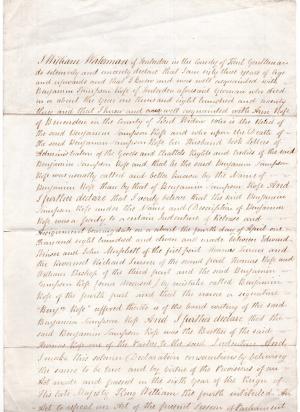 I William Waterman of Tenterden in the County of Kent Gentleman
do solemnly and sincerely declare that I am eighty three years of age
and upwards and that I knew and was well acquainted with
Benjamin Simpson Kofe of Tenterden aforesaid German who died
in or about the year one thousand eight hundred and twenty
three and that I knew and was well acquainted with Ann Kofe
of Benenden in the County of Kent Widow who is the Relict of
the said Benjamin Simpson Kofe and who upon the Death of
the said Benjamin Simpson Kofe her Husband took Letters of
Administration of the Goods and Chattels Rights and Credits of the said
Benjamin Simpson Kofe and that he the said Benjamin Simpson
Kofe was usually called and better known by the Name of
Benjamin Kofe than by that of Benjamin Simpson Kofe And
I further declare that I verily believe that the said Benjamin
Simpson Kofe under the Name and Description of Benjamin
Kofe was a party to a certain Indenture of Release and
Assignment bearing date on or about the fourth day of April one
thousand eight hundred and eleven and made between Edward
and John of the first part Thomas
the Reverend Richard of the second part Thomas Kofe and
William Bishop of the third part and the said Benjamin
Simpson Kofe (now deceased) by mistake called Benjamin
Kofe of the fourth part and that the name or signature
"Benjn Kofe" affixed thereto is of the hand writing of the said
Benjamin Simpson Kofe And I further declare that the
said Benjamin Simpson Kofe was the Brother of the said
Thomas Kofe one of the Parties to the said Indenture And
I make this solemn Declaration conscientiously believing
the same to be true and by virtue of the Provisions of an
Act made and passed in the sixth year of the Reign of
His late Majesty King William the fourth intituled An
Act to repeal an Act of the present Session of Parliament